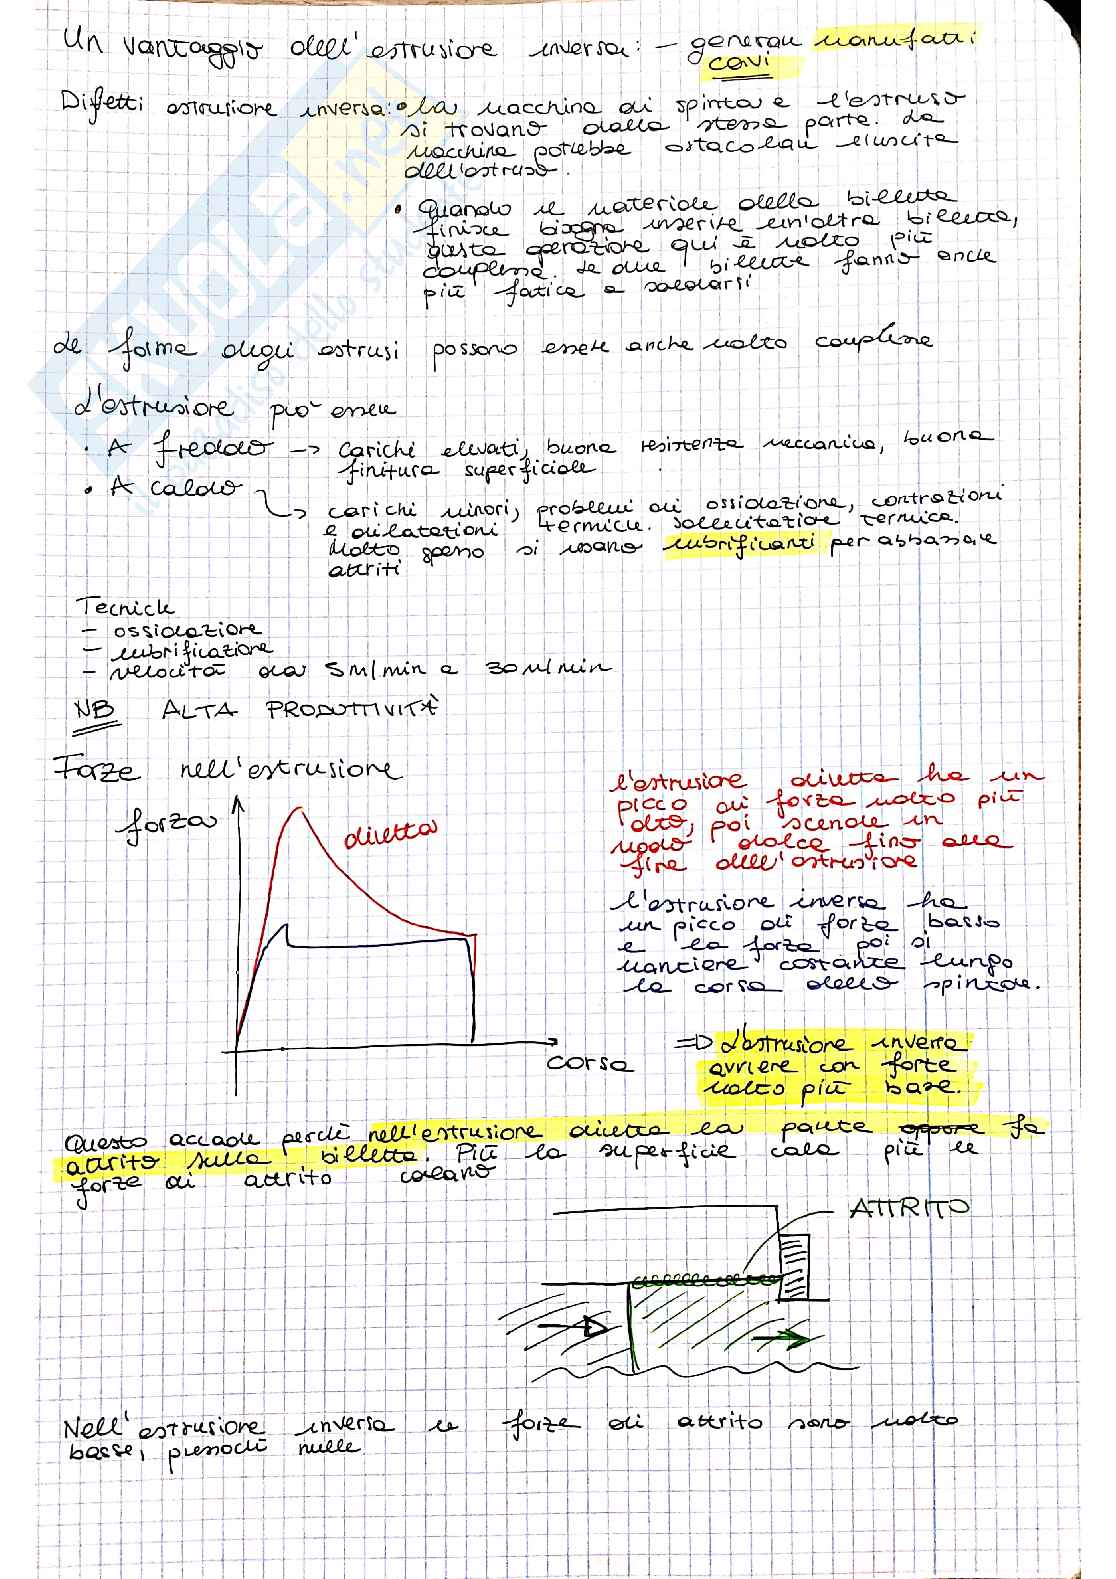 Un vantaggio dell'estrusione inversa: - generare manufatti
cavi
Difetti estrusione inversa: • la macchina di spinta e l'estruso
si trovano dalla stessa parte. La
macchina potrebbe ostacolare l'uscita
dell'estruso.
• Quando il materiale della billetta
finisce bisogna inserire un'altra billetta,
questa operazione qui è molto più
complessa. Le due billette fanno anche
più fatica a saldarsi
Le forme degli estrusi possono essere anche molto complesse
L'estrusione può essere
• A freddo → carichi elevati, buona resistenza meccanica, buona
finitura superficiale
• A caldo
→ carichi minori, problemi di ossidazione, contrazioni
e dilatazioni termiche. Sollecitazione termica.
Molto spesso si usano lubrificanti per abbassare
attriti
Tecniche
- ossidazione
- lubrificazione
- velocità da 5m/min a 30m/min
NB ALTA PRODUTTIVITÀ
Forze nell'estrusione
forza
diretta
corsa
l'estrusione diretta ha un
picco di forza molto più
alto, poi scende in
modo dolce fino alla
fine dell'estrusione
l'estrusione inversa ha
un picco di forza basso
e la forza poi si
mantiene costante lungo
la corsa dello spintore.
=D L'estrusione inversa
avviene con forze
molto più basse.
Questo accade perché nell'estrusione diretta la parete oppone fa
attrito sulla billetta. Più la superficie cala più le
forze di attrito calano
ATTRITO
Nell'estrusione inversa le forze di attrito sono molto
basse, pressoché nulle
SKUOLA.net